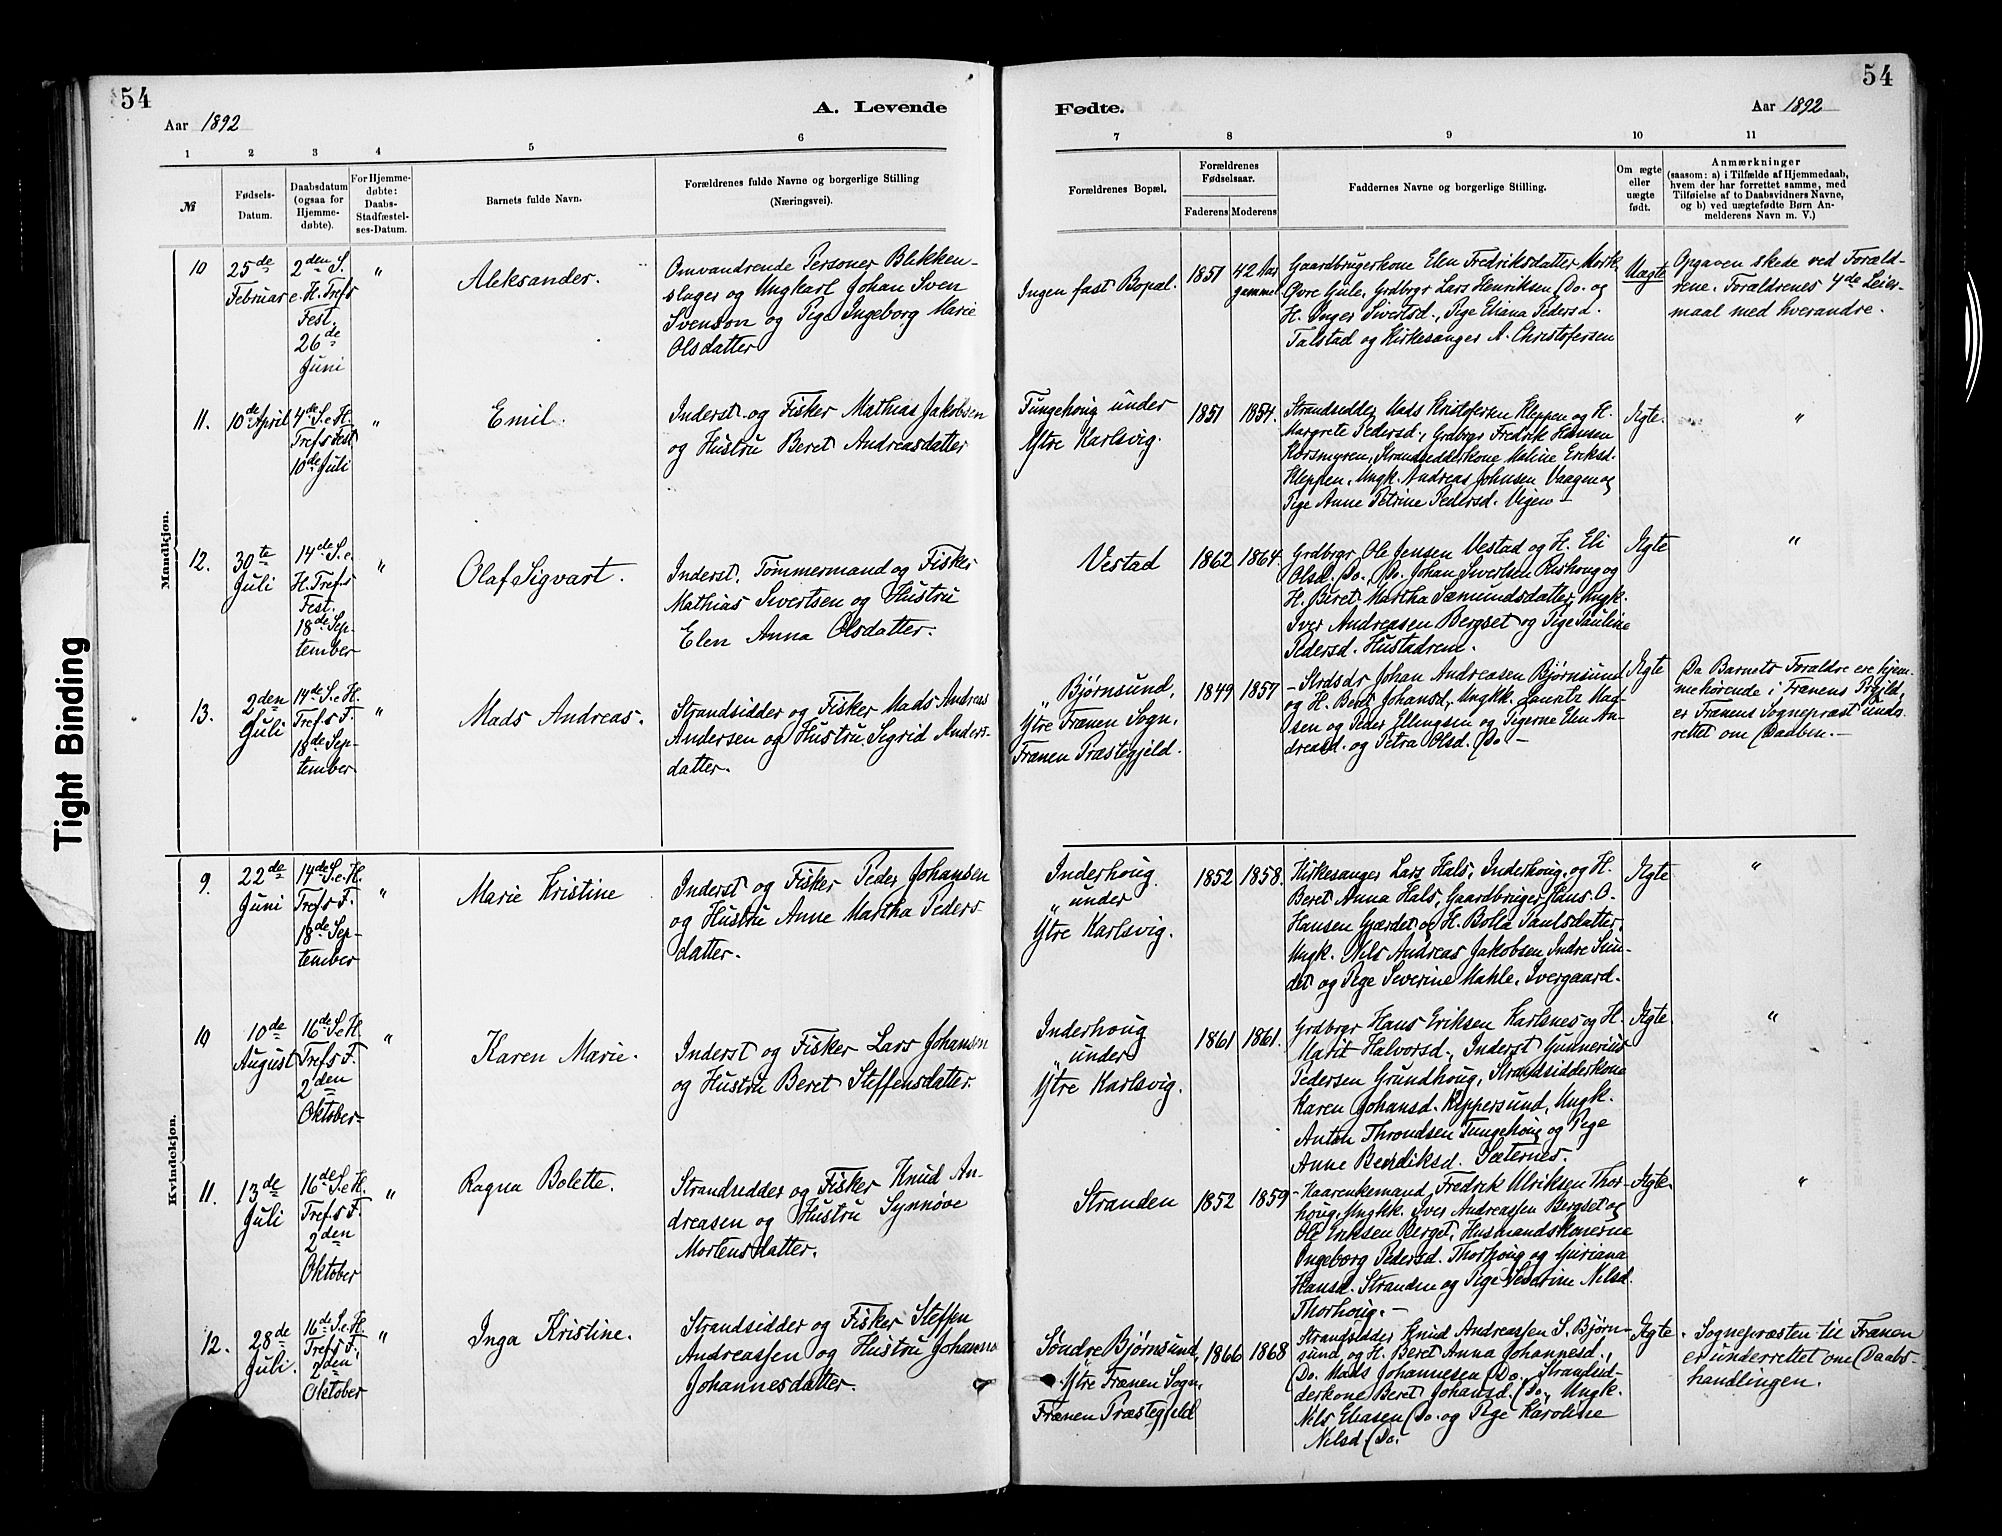 54
A. Levende
Aar 1892
1 2 3 4 5 6
№
Fødsels-
Datum.
Daabsdatum
(ogsaa for
Hjemme-
døbte).
For Hjemme-
døbte:
Daabs-
Stadfæstel-
ses-Datum.
Barnets fulde Navn.
Forældrenes fulde Navne og borgerlige Stilling
(Næringsvei).
Mandkjøn.
10
25de
Februar
2den S.
e. H. Trefs
Fest.
26de
Juni
"
Aleksander.
Omvandrende Personer Blikken-
slager og Ungkarl Johan Sven
Svenson og Pige Ingeborg Marie
Olsdatter
11.
10de April
4de S. e. H.
Trefs Fest
10de Juli
"
Emil.
Inderst og Fisker Mathias Jakobsen
og Hustru Beret Andreasdatter
12.
30te
Juli
14de S. e.
H. Trefs
Fest.
18de Sep-
tember
"
Olaf Sigvart.
Inderst, Tømmermand og Fisker
Mathias Sivertsen og Hustru
Elen Anna Olsdatter.
13.
2den
Juli
14de S. e. H.
Trefs F.
18de Sep-
tember.
"
Mads Andreas.
Strandsidder og Fisker Mads Andreas
Andersen og Hustru Sigrid Anders-
datter.
Kvindekjøn.
9.
22de
Juni
14de S. e. H.
Trefs F.
18de Sep-
tember
"
Marie Kristine
Inderst og Fisker Peder Johansen
og Hustru Anne Martha Peders-
datter.
10
10de
August
16de S. e. H.
Trefs F.
2den
Oktober
"
Karen Marie.
Inderst og Fisker Lars Johansen
og Hustru Beret Steffensdatter.
11.
13de
Juli
16de S. e. H.
Trefs F.
2den
Oktober
"
Ragna Bolette.
Strandsidder og Fisker Knud An-
dreasen og Hustru Synnøve
Mortensdatter.
12.
28de
Juli.
16de S. e. H.
Trefs F.
2den
Oktober
"
Inga Kristine.
Strandsidder og Fisker Steffen
Andreassen og Hustru Johanna
Johannesdatter.
Tight Binding
54
Fødte.
Aar 1892
7 8 9 10 11
Forældrenes Bopæl.
Forældrenes
Fødselsaar.
Faderens Moderens
Faddernes Navne og borgerlige Stilling.
Om ægte
eller
uægte
født.
Anmærkninger
(saasom: a) i Tilfælde af Hjemmedaab,
hvem der har forrettet samme, med
Tilføielse af to Daabsvidners Navne,
og b) ved uægtefødte Børn An-
melderens Navn m. V.)
Ingen fast Bopæl.
1851
42 Aar
gammel
Gaardbrugerkone Elen Fredriksdatter Mork
Øvre Gule, Grdbrgr Lars Henriksen Do. og
H. Inger Sivertsd., Pige Eliana Pedersd.
Talstad og Kirkesanger A. Christofersen
Uægte
Opgaven skede ved Foræld-
rene. Forældrenes 4de Leier-
maal med hverandre.
Tungehoug under
Ytre Karlsvig.
1851
1854.
Strandsidder Mads Kristofersen Kleppen og H.
Margrete Pedersd., Grdbrgr Fredrik Hansen
Korsmyren, Strandsidderkone Maline Eriksd.
Kleppen, Ungk. Andreas Johnsen Vaagen og
Pige Anne Petrine Pedersd. Vigen
Ægte.
"
Vestad
1862
1864.
Grdbrgr. Ole Jensen Vestad og H. Eli
Olsd. Do., Do. Johan Sivertsen Rishoug og
H. Beret Martha Sæmundsdatter, Ungk.
Iver Andreasen Bergset og Pige Pauline
Pedersd. Hustadrem.
Ægte
"
Bjørnsund,
Ytre Frænen Sogn,
Frænen Præstegjeld.
1849
1857
- Strdsdr Johan Andreasen Bjørnsund
og H. Beret Johansd., Ungkk. Lauritz Mad-
sen og Peder Ellingsen og Pigerne Elen An-
dreasd. og Petra Olsd. Do. -
Ægte
Da Barnets Forældre ere hjem-
mehørende i Frænens Prgjld,
er Frænens Sognepræst under-
rettet om Daaben. -
Inderhoug
under
Ytre Karlsvig.
1852
1858.
Kirkesanger Lars Hals, Inderhoug, og H.
Beret Anna Hals, Gaardbruger Hans O.
Hansen Gjærdet og H. Bolla Paulsdatter,
Ungk. Nils Andreas Jakobsen Indre Sun-
det og Pige Severine Mahle, Ivergaard.
Ægte
"
Inderhoug
under
Ytre Karlsvig.
1861
1861.
Grdbrgr Hans Eriksen Karlsnes og H.
Marit Halvorsd., Inderst Gunnerius
Pedersen Grundhoug, Strandsidderkone
Karen Johansd. Keppersund, Ungk.
Anton Throndsen Tungehoug og Pige
Anne Bendiksd. Sæternes.
Ægte.
"
Stranden
1852
1859
- Kaarenkemand Fredrik Ulriksen Thor-
houg, Ungkk. Iver Andreassen Bergset og
Ole Eriksen Berget, Husmandskonerne
Ingeborg Pedersd. Thorhoug og Guriana
Hansd. Stranden og Pige Severine Nilsd.
Thorhoug. -
Ægte.
"
Søndre Bjørnsund,
Ytre Frænen Sogn,
Frænen Præstegjeld
1866
1868
Strandsidder Knud Andreassen S. Bjørn-
sund og H. Beret Anna Johannesd.,
Do. Mads Johannesen Do., Strandsid-
derkone Beret Johansd. Do., Ungk.
Nils Eliasen Do. og Pige Karoline
Nilsd. Do.
Ægte
Sognepræsten til Frænen
er underrettet om Daabs-
handlingen.